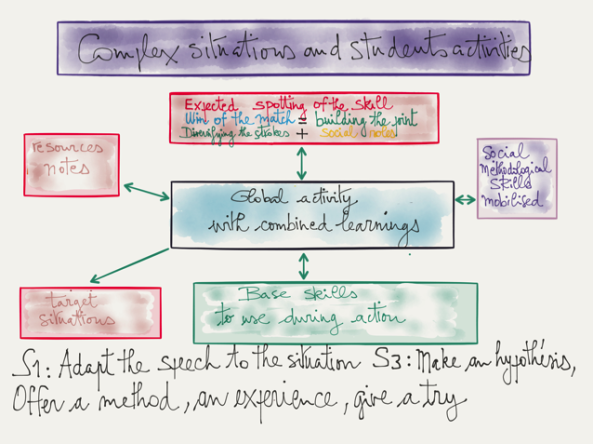 Complex situations and students activities
Expected spotting of the skill
Win of the match = building the joint
Diversifying the strokes + social notes
resources
notes
Social
Methodological
skills
mobilised
Global activity
with combined learnings
target
situations
Base skills
to use during action
S1: Adapt the speech to the situation S3: Make an hypothésis,
Offer a method, an experience, give a try